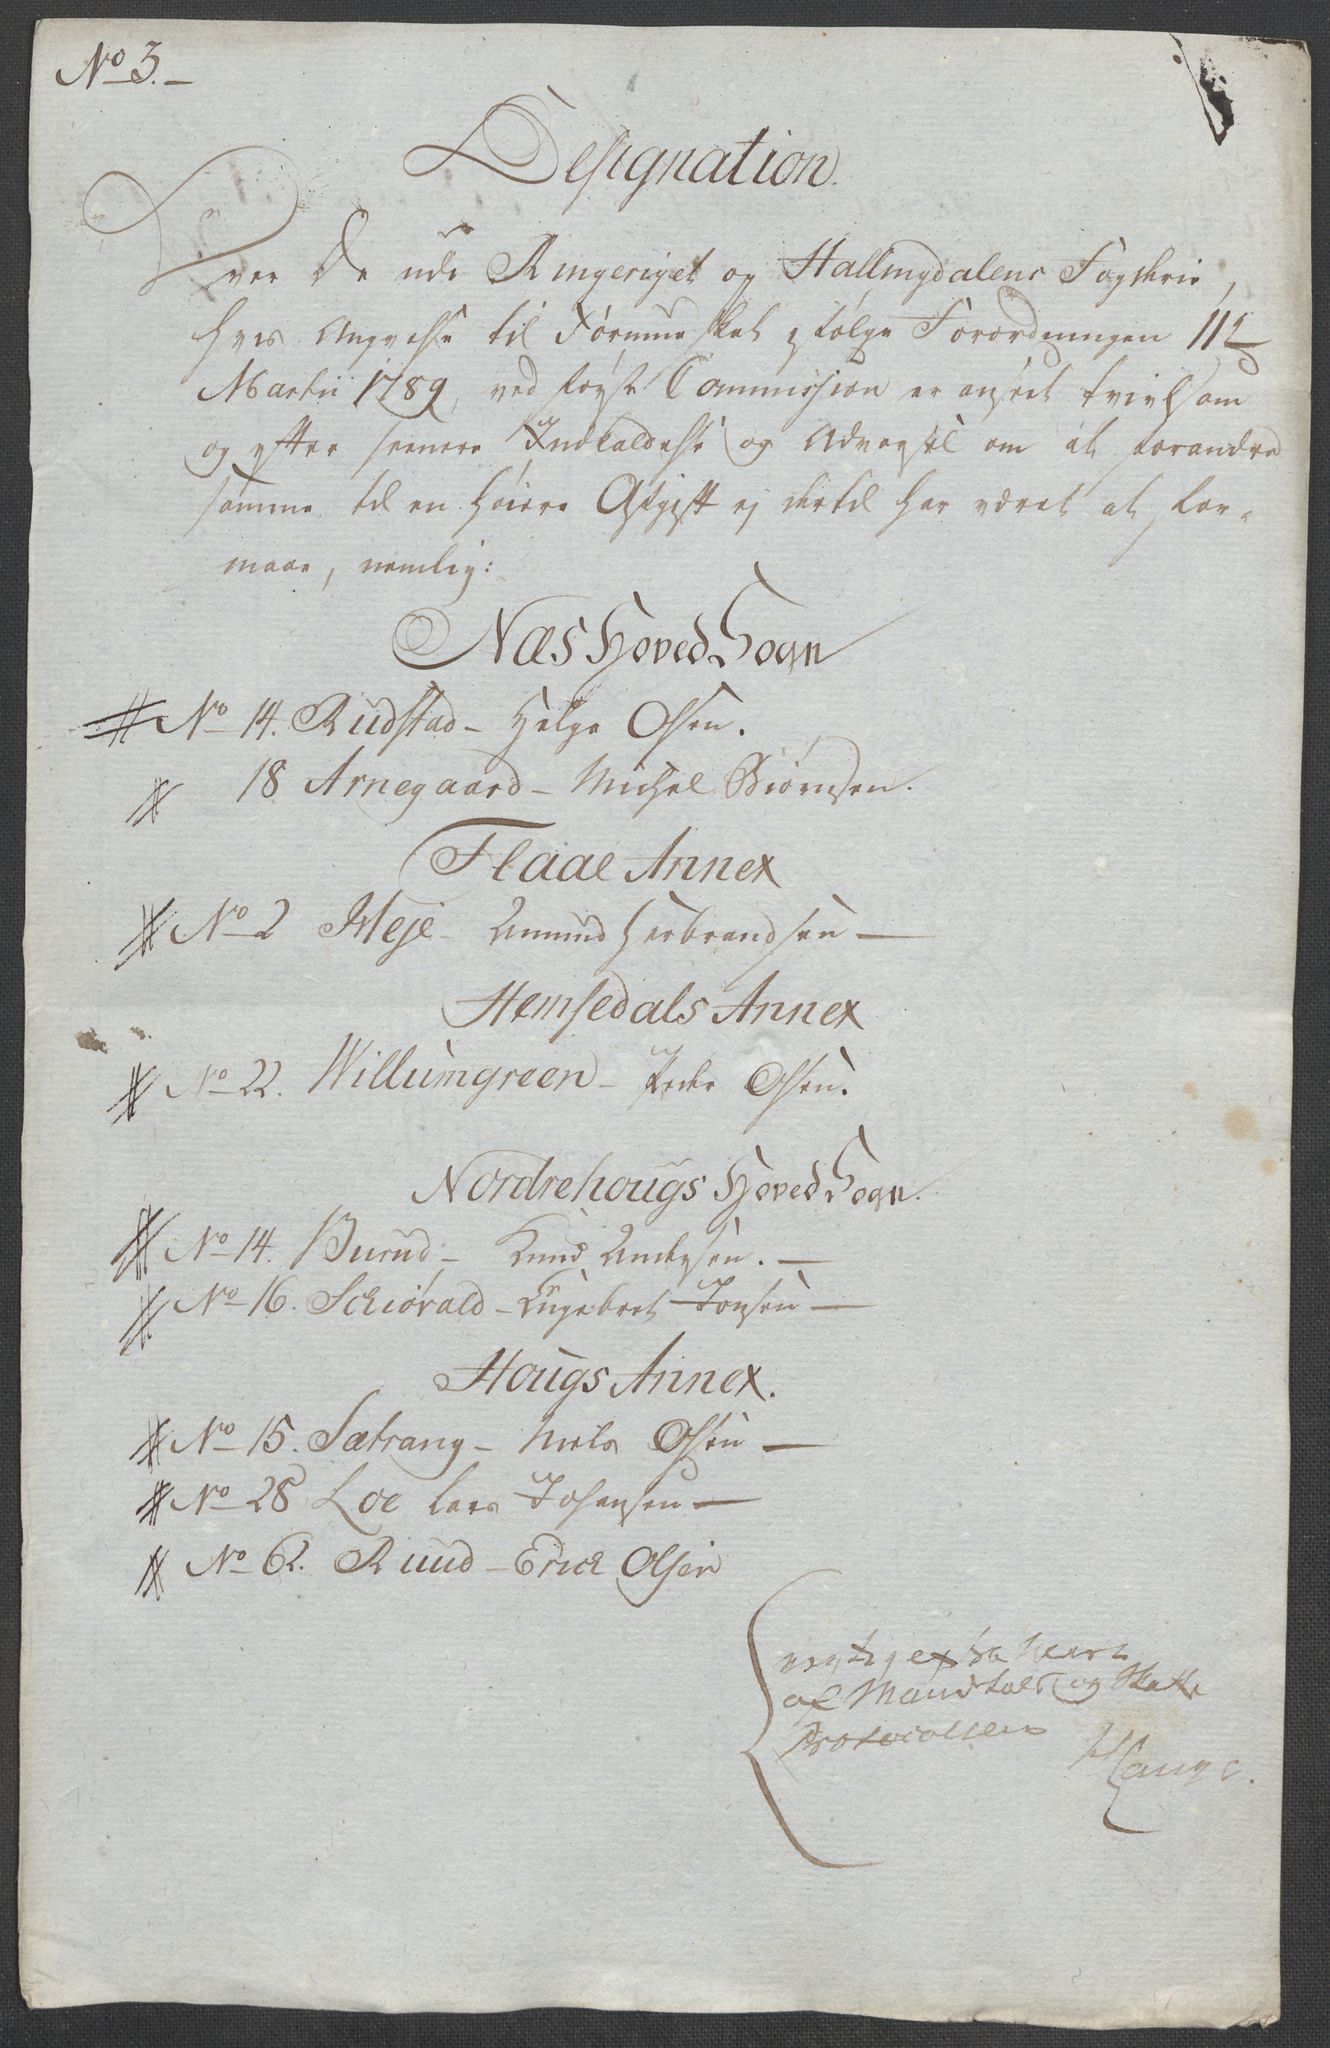 No 3.
Designation
Over De udi Ringeriget og Hallingdalens Fogderie,
hvis Angivelse til Formue skat ifølge Forordningen 11te
Martii 1789, ved første Commission er anseet tvivlsom
og efter seenere Indkaldelse og Advarsel om at forandre
samme til en høiere Afgift ej dertil har været at for-
maae, nemlig:
Næs Hoved Sogn
No 14. Rudstad - Helge Olsen.
18 Arnegaard - Michel Biørnsen.
Flaae Annex
No 2 Meje - Amund Herbrandsen
Hemsedals Annex
No 22. Willumgreen - Peder Olsen.
Nordrehougs Hoved Sogn.
No 14. Burud - Knud Andersen.
No 16. Schiørvald - Engebret Jonsen
Hougs Annex.
No 15. Sætrang - Niels Olsen
No 28 Loe Lars Johansen
No 62. Ruud - Erick Olsen
rigtig
af Mandtals og Skatte
Protocollen